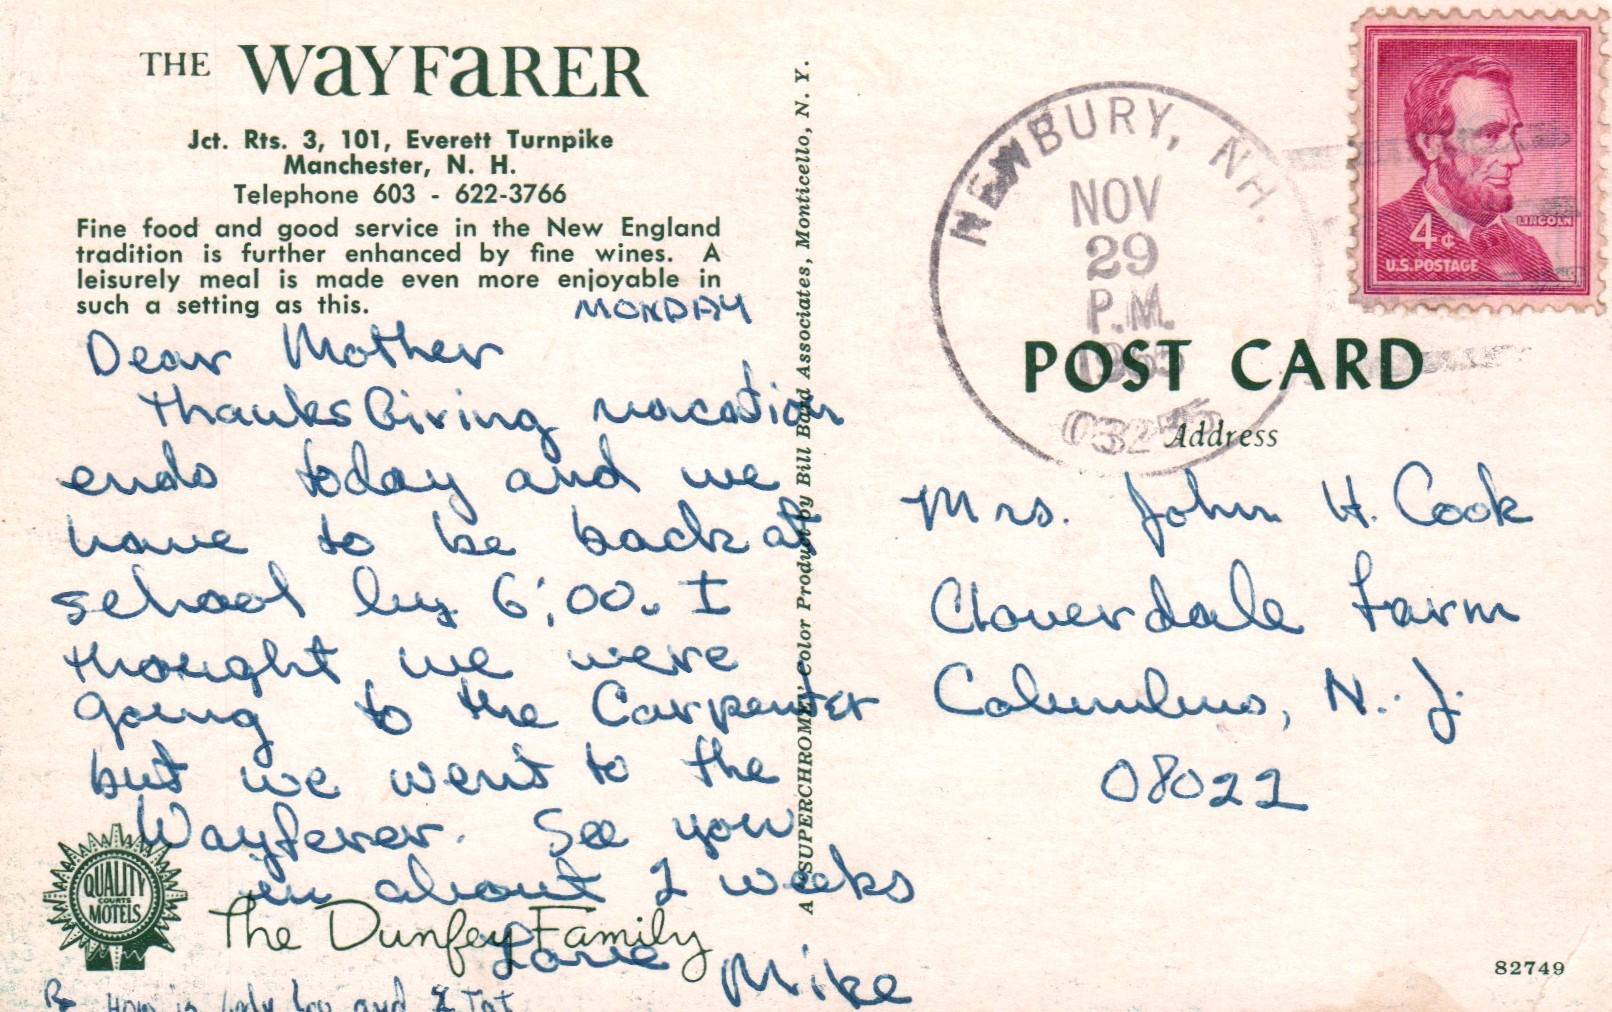 THE WAYFARER
Jct. Rts. 3, 101, Everett Turnpike
Manchester, N. H.
Telephone 603 - 622-3766
Fine food and good service in the New England
tradition is further enhanced by fine wines. A
leisurely meal is made even more enjoyable in
such a setting as this.
MONDAY
Dear Mother
Thanks Giving vacation
ends today and we
have to be back at
school by 6:00. I
thought we were
going to the Carpenter
but we went to the
Wayferer. See you
in about 2 weeks
Love Mike
How is Lady Lou and Tat
QUALITY
COURTS
MOTELS
The Dunfey Family
A "SUPERCHROME" Color Product by Bill Bard Associates, Monticello, N. Y.
NEWBURY, NH.
NOV
29
P.M.
1965
LINCOLN
4¢
U.S. POSTAGE
POST CARD
Address
Mrs. John H. Cook
Cloverdale Farm
Columbus, N. J.
08022
82749